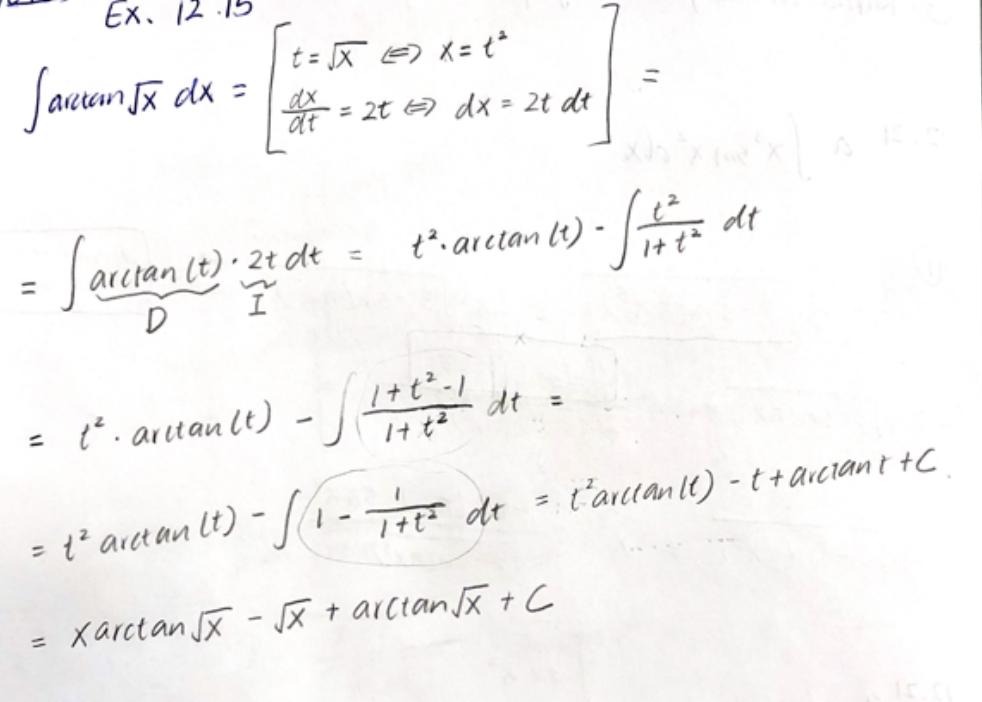 Ex. 12.15
∫ arctan √x dx = [ t = √x ⇔ x = t²
dx/dt = 2t ⇔ dx = 2t dt ] =
= ∫ arctan (t) · 2t dt = t² · arctan (t) - ∫ t²/(1+t²) dt
D I
= t² · arctan (t) - ∫ (1+t²-1)/(1+t²) dt =
= t² arctan (t) - ∫ 1 - 1/(1+t²) dt = t² arctan (t) - t + arctan t + C
= x arctan √x - √x + arctan √x + C